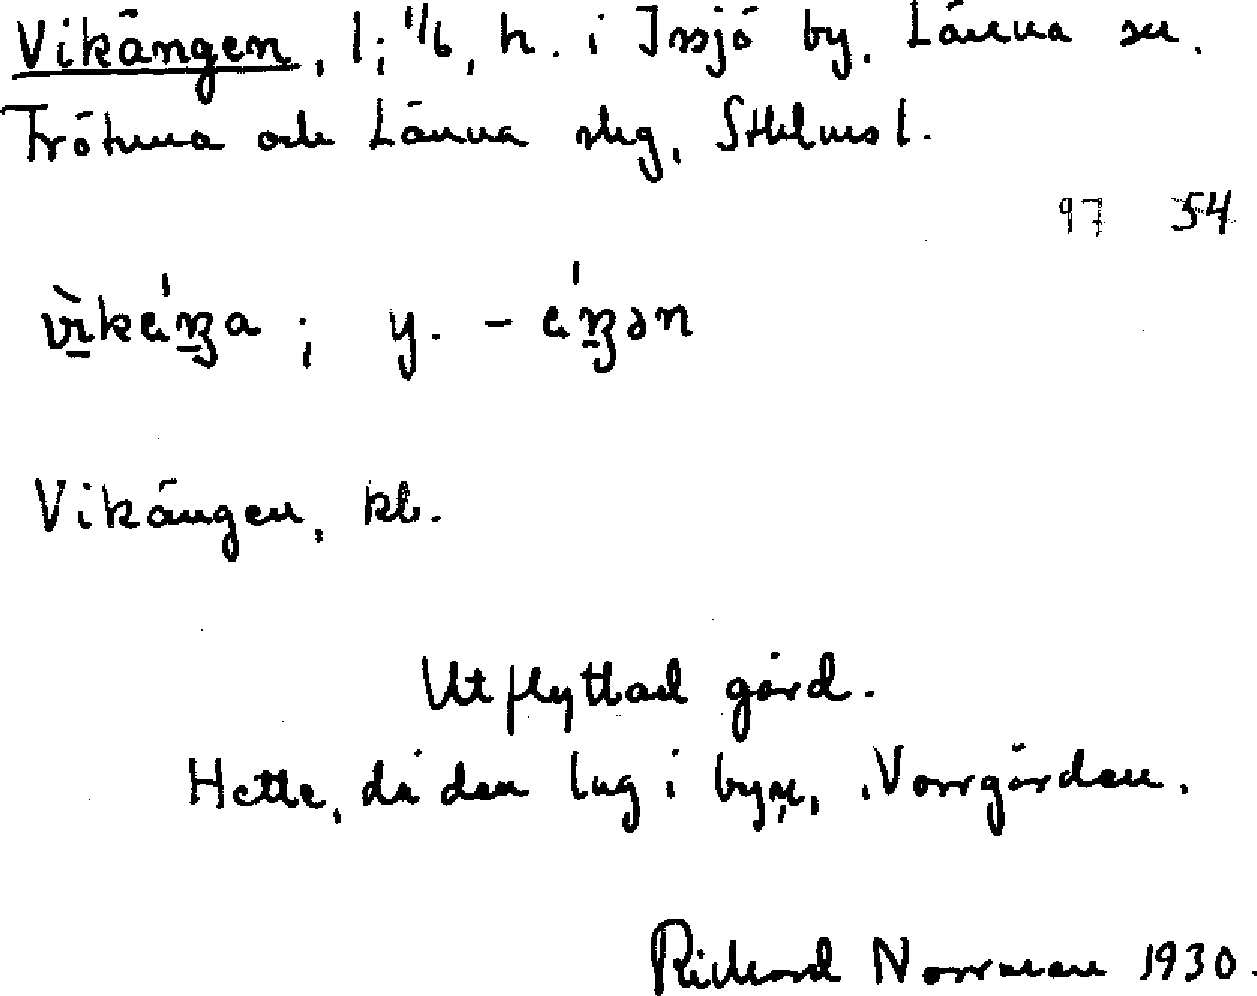 Vikängen, 1; 1/6, h. i Issjö by, Länna sn.
Frötuna och Länna slg, Sthlms l.
97 54
vìkéŋa; y. - éŋən
Vikängen, kb.
Utflyttad gård.
Hette, då den låg i byn, Norrgården.
Rickard Norrman 1930.